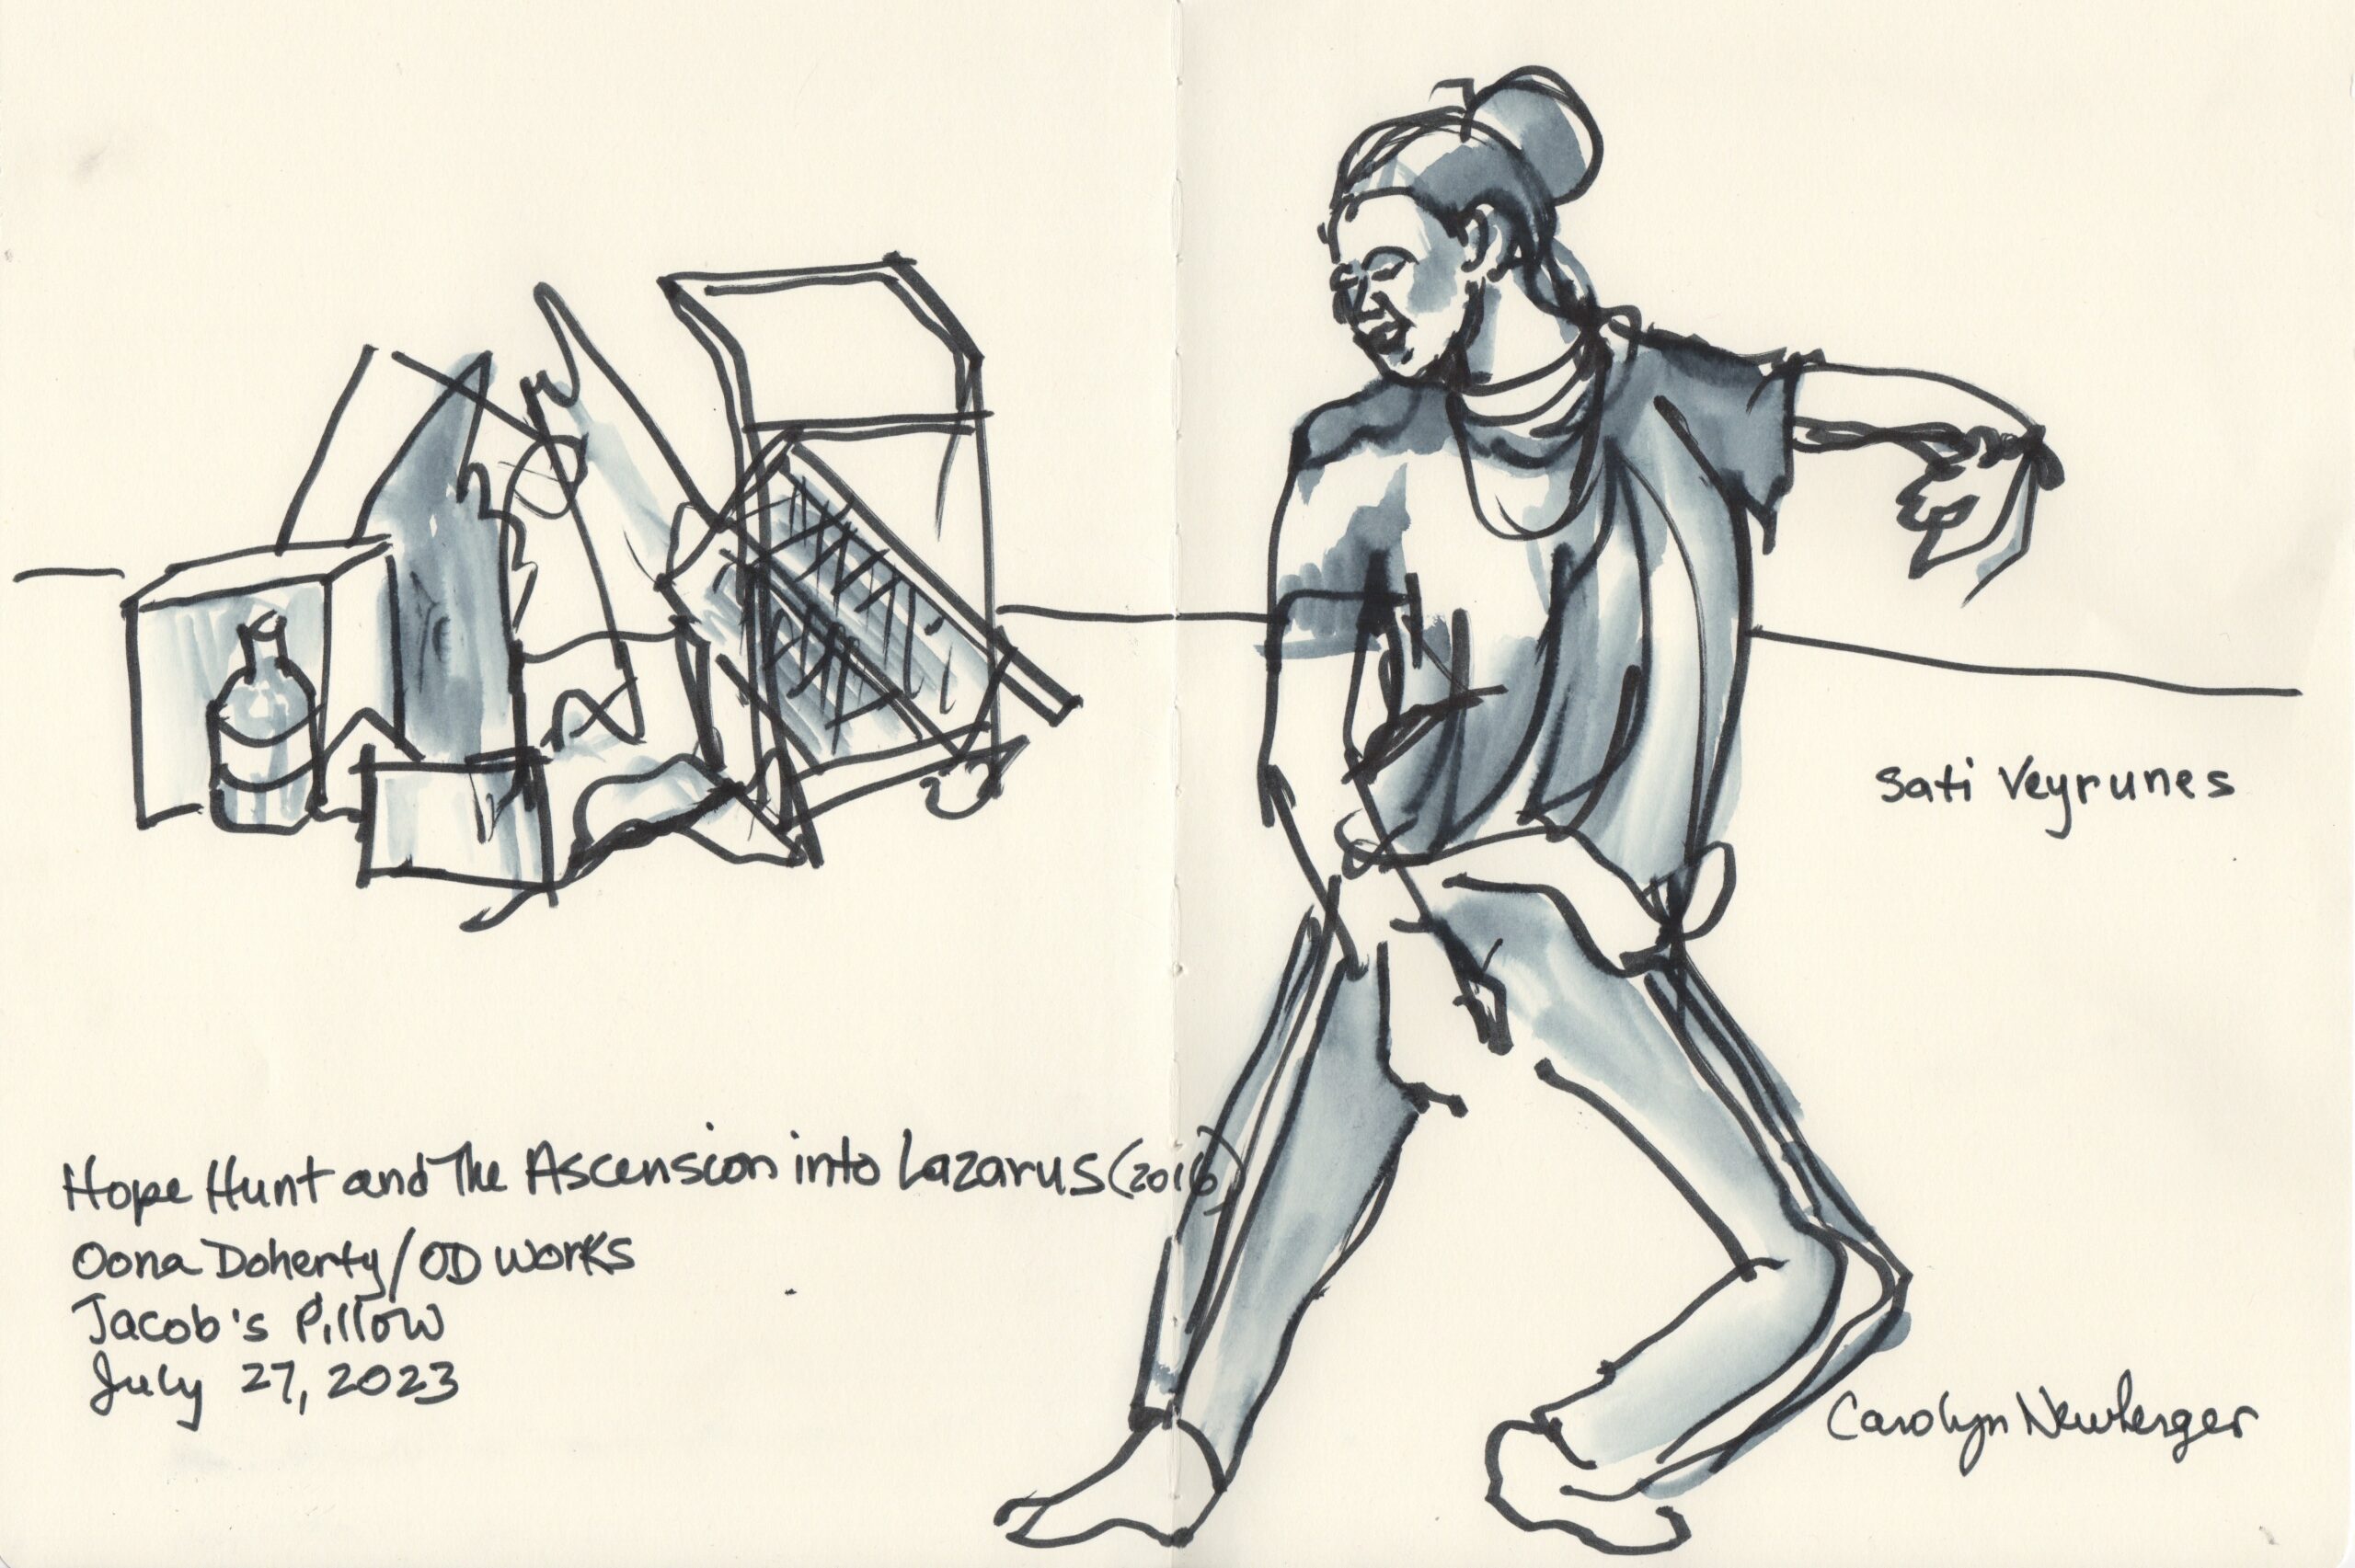 Hope Hunt and The Ascension into Lazarus (2016)
Oona Doherty/OD Works
Jacob's Pillow
July 27, 2023
Sati Veyrunes
Carolyn Newberger